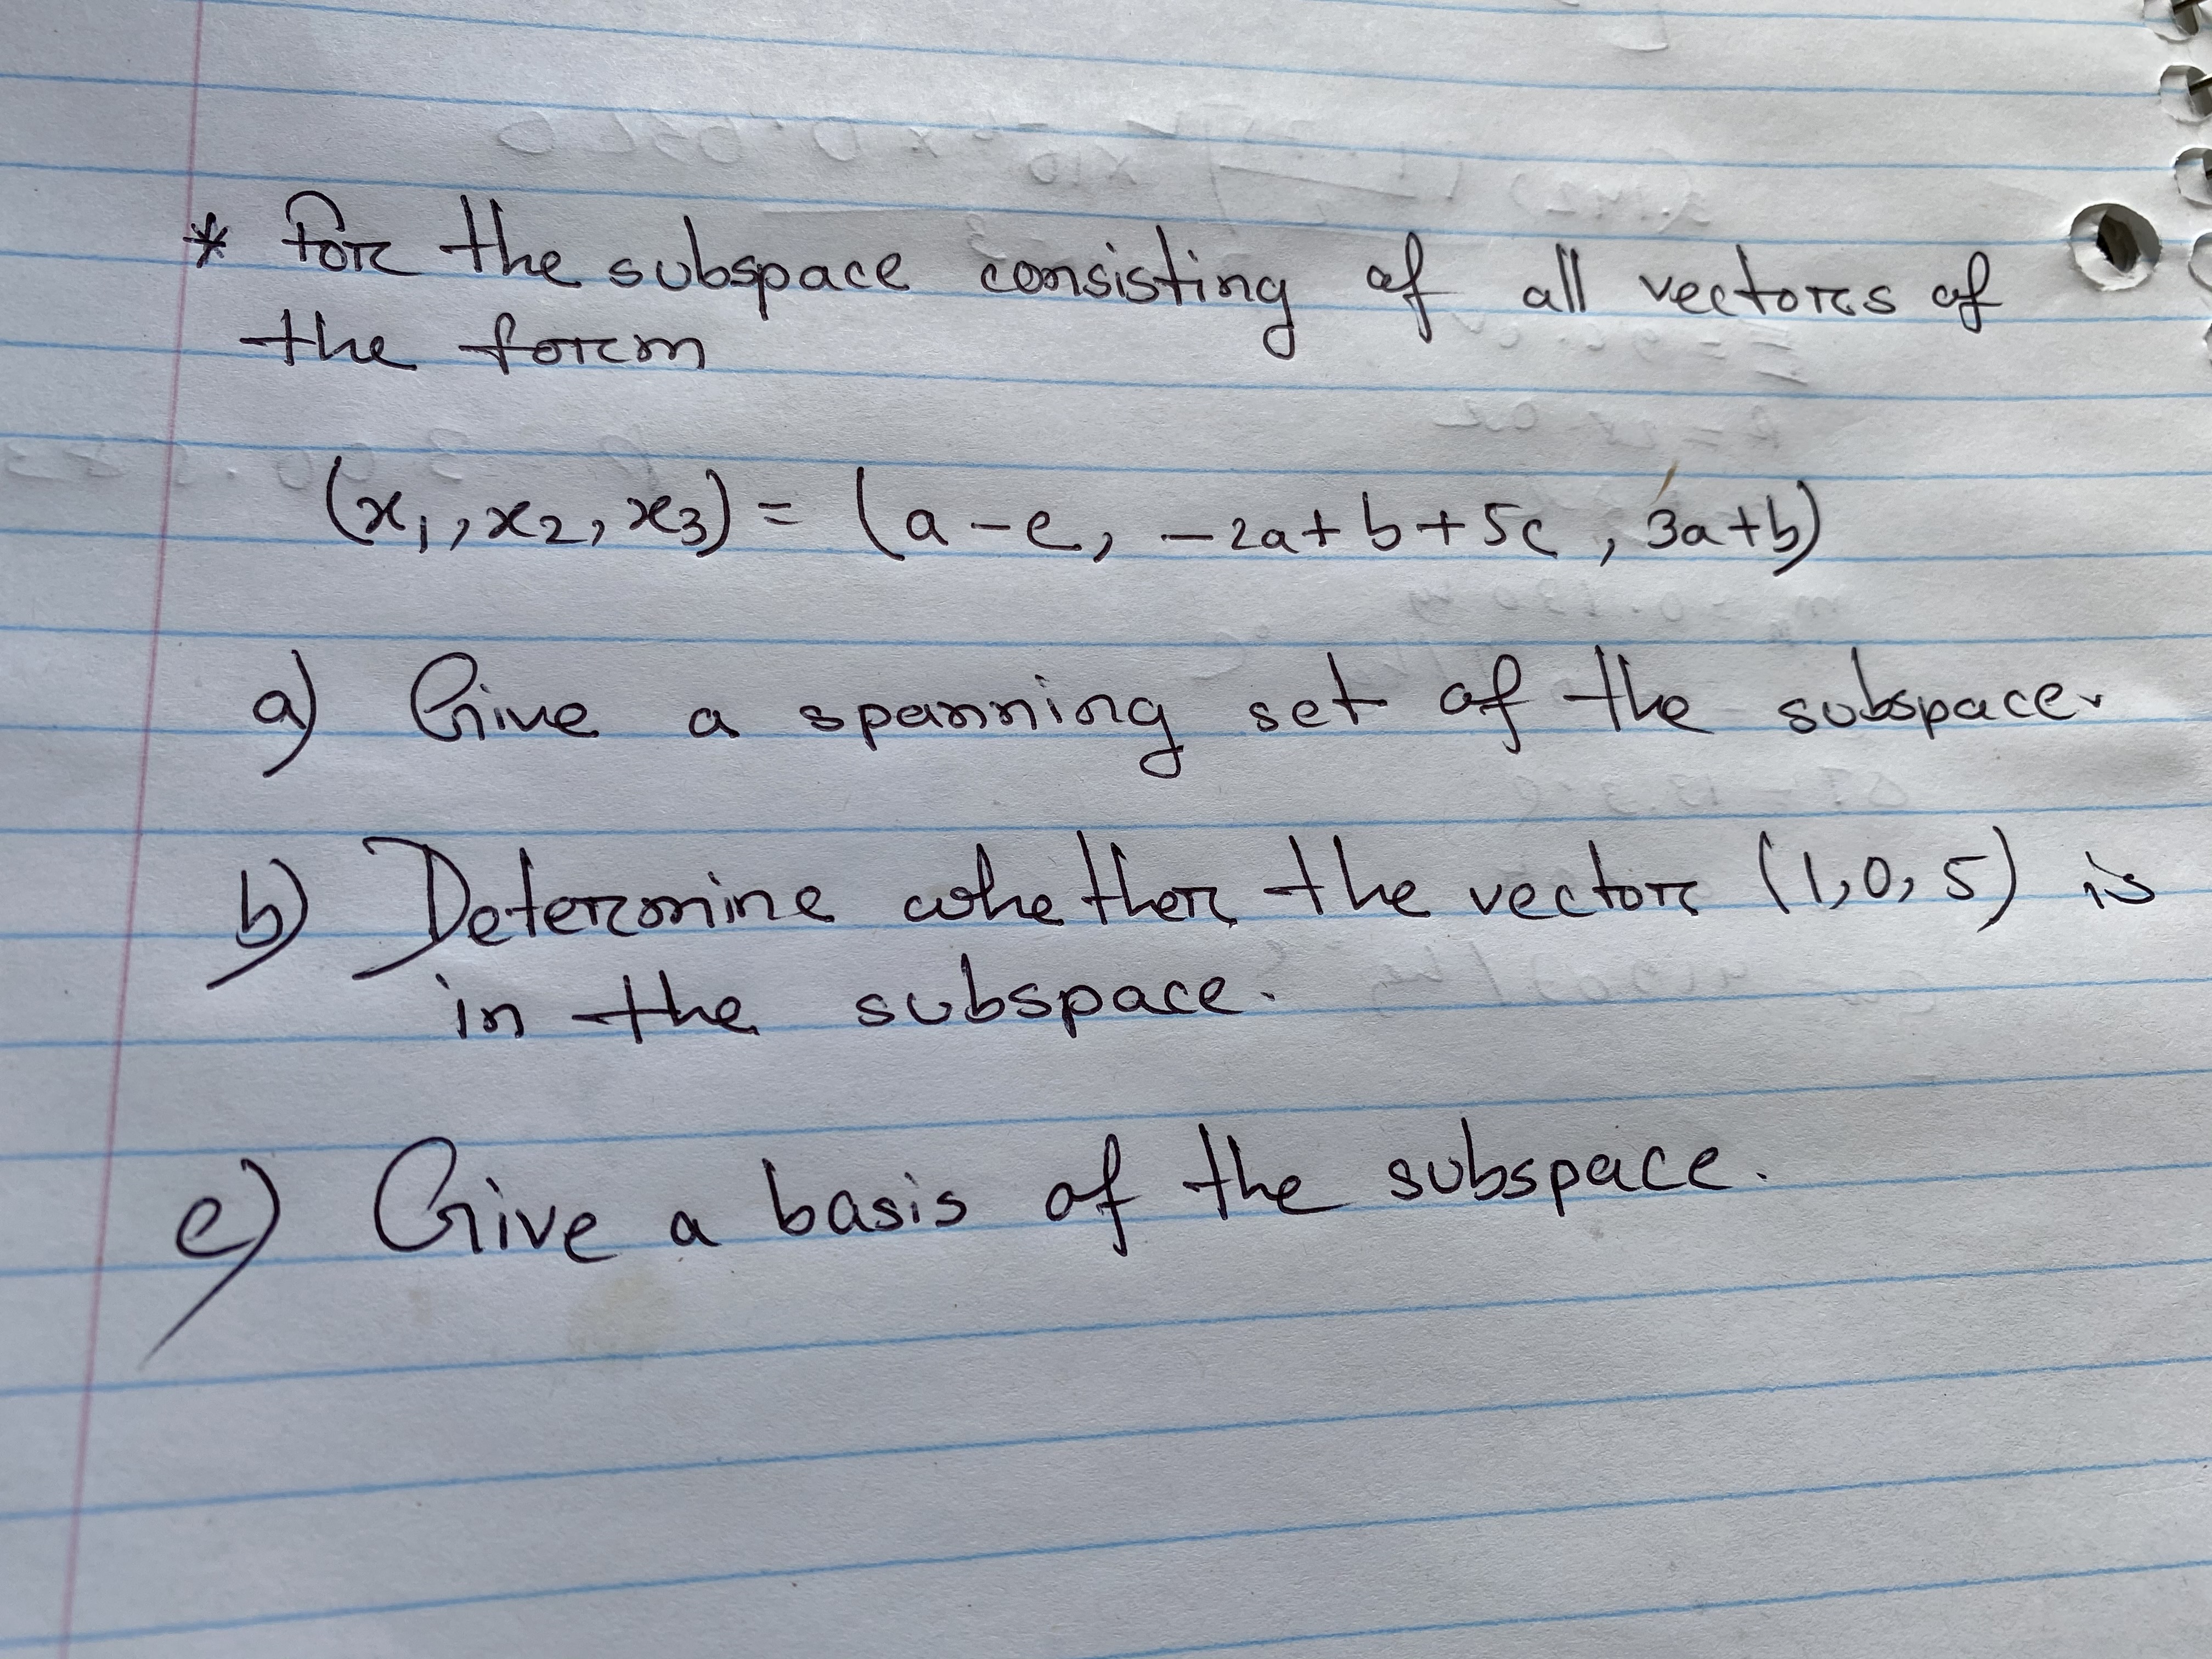 * For the subspace consisting of all vectors of
the form
(x₁, x₂, x₃) = (a-c, -2a+b+5c, 3a+b)
a) Give a spanning set of the subspace.
b) Determine whether the vector (1,0,5) is
in the subspace.
c) Give a basis of the subspace.